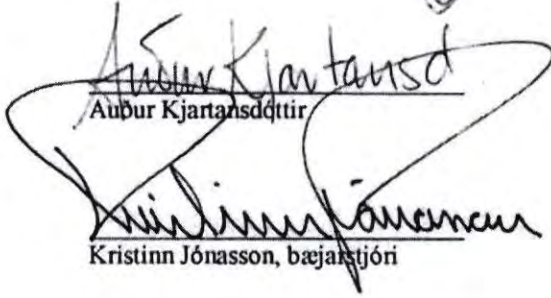 Auður Kjartansd
Auður Kjartansdóttir
Kristinn Jónasson
Kristinn Jónasson, bæjarstjóri